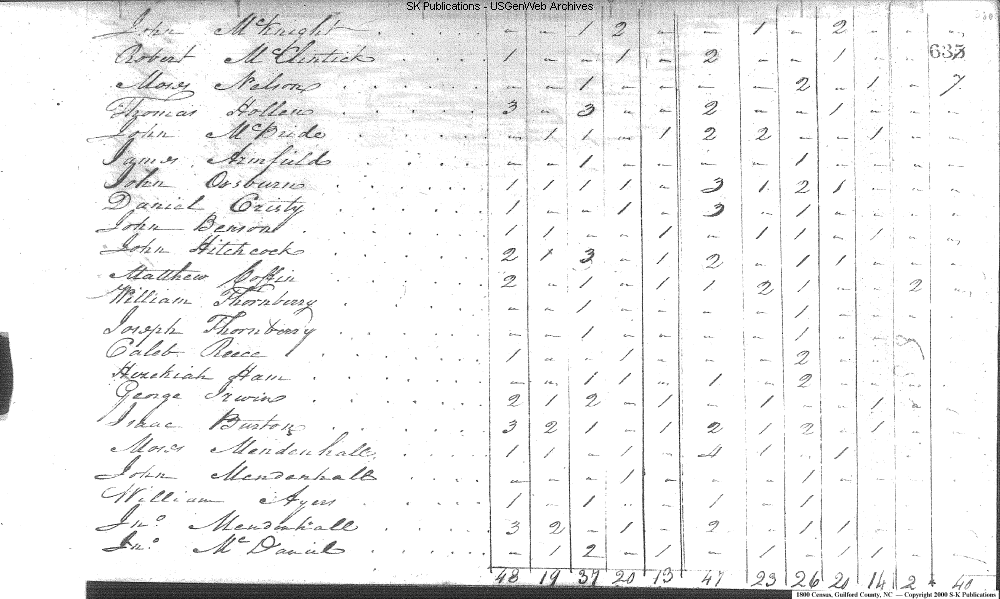 SK Publications - USGenWeb Archives
John McKnight . . . . - - 1 2 - - 1 - 2 - -
635
Robert McClintick . . . . 1 - - 1 - 2 - - 1 - -
Moses Nelson . . . . - - 1 - - - - 2 - 1 - 7
Thomas Hollen . . . . 3 - 3 - - 2 - - 1 - - -
John McBride . . . . - 1 1 - 1 2 2 - - 1 - -
James Armfield . . . . - - 1 - - - - 1 - - - -
John Orsburn . . . . 1 1 1 1 - 3 1 2 1 - - -
Daniel Cristy . . . . 1 - - 1 - 3 - 1 - - - -
John Benson . . . . 1 1 - - 1 - 1 1 - 1 - -
John Hitchcock . . . . 2 1 3 - 1 2 - 1 1 - - -
Matthew Coffin . . . . 2 - 1 - 1 1 2 1 - - 2 -
William Thornberry . . . . - - 1 - - - - 1 - - -
Joseph Thornberry . . . . - - 1 - - - - 1 - - -
Caleb Reece . . . . 1 - - 1 - - - 2 - - -
Hezekiah Ham . . . . - - 1 1 - 1 - 2 - - -
George Irwin . . . . 2 1 2 - 1 - 1 - - 1 -
Isaac Burton . . . . 3 2 1 - 1 2 1 2 - 1 -
Moses Mendenhall . . . . 1 1 - 1 - 4 1 - 1 - -
John Mendenhall . . . . - - - 1 - - - 1 - - -
William Ayers . . . . 1 - 1 - - 1 - 1 - - -
Jno. Mendenhall . . . . 3 2 - 1 - 2 - 1 1 - -
Jno. McDaniel . . . . - 1 2 - 1 - 1 - 1 1 -
48 19 37 20 13 47 23 26 20 14 2 40
1800 Census, Guilford County, NC — Copyright 2000 S-K Publications